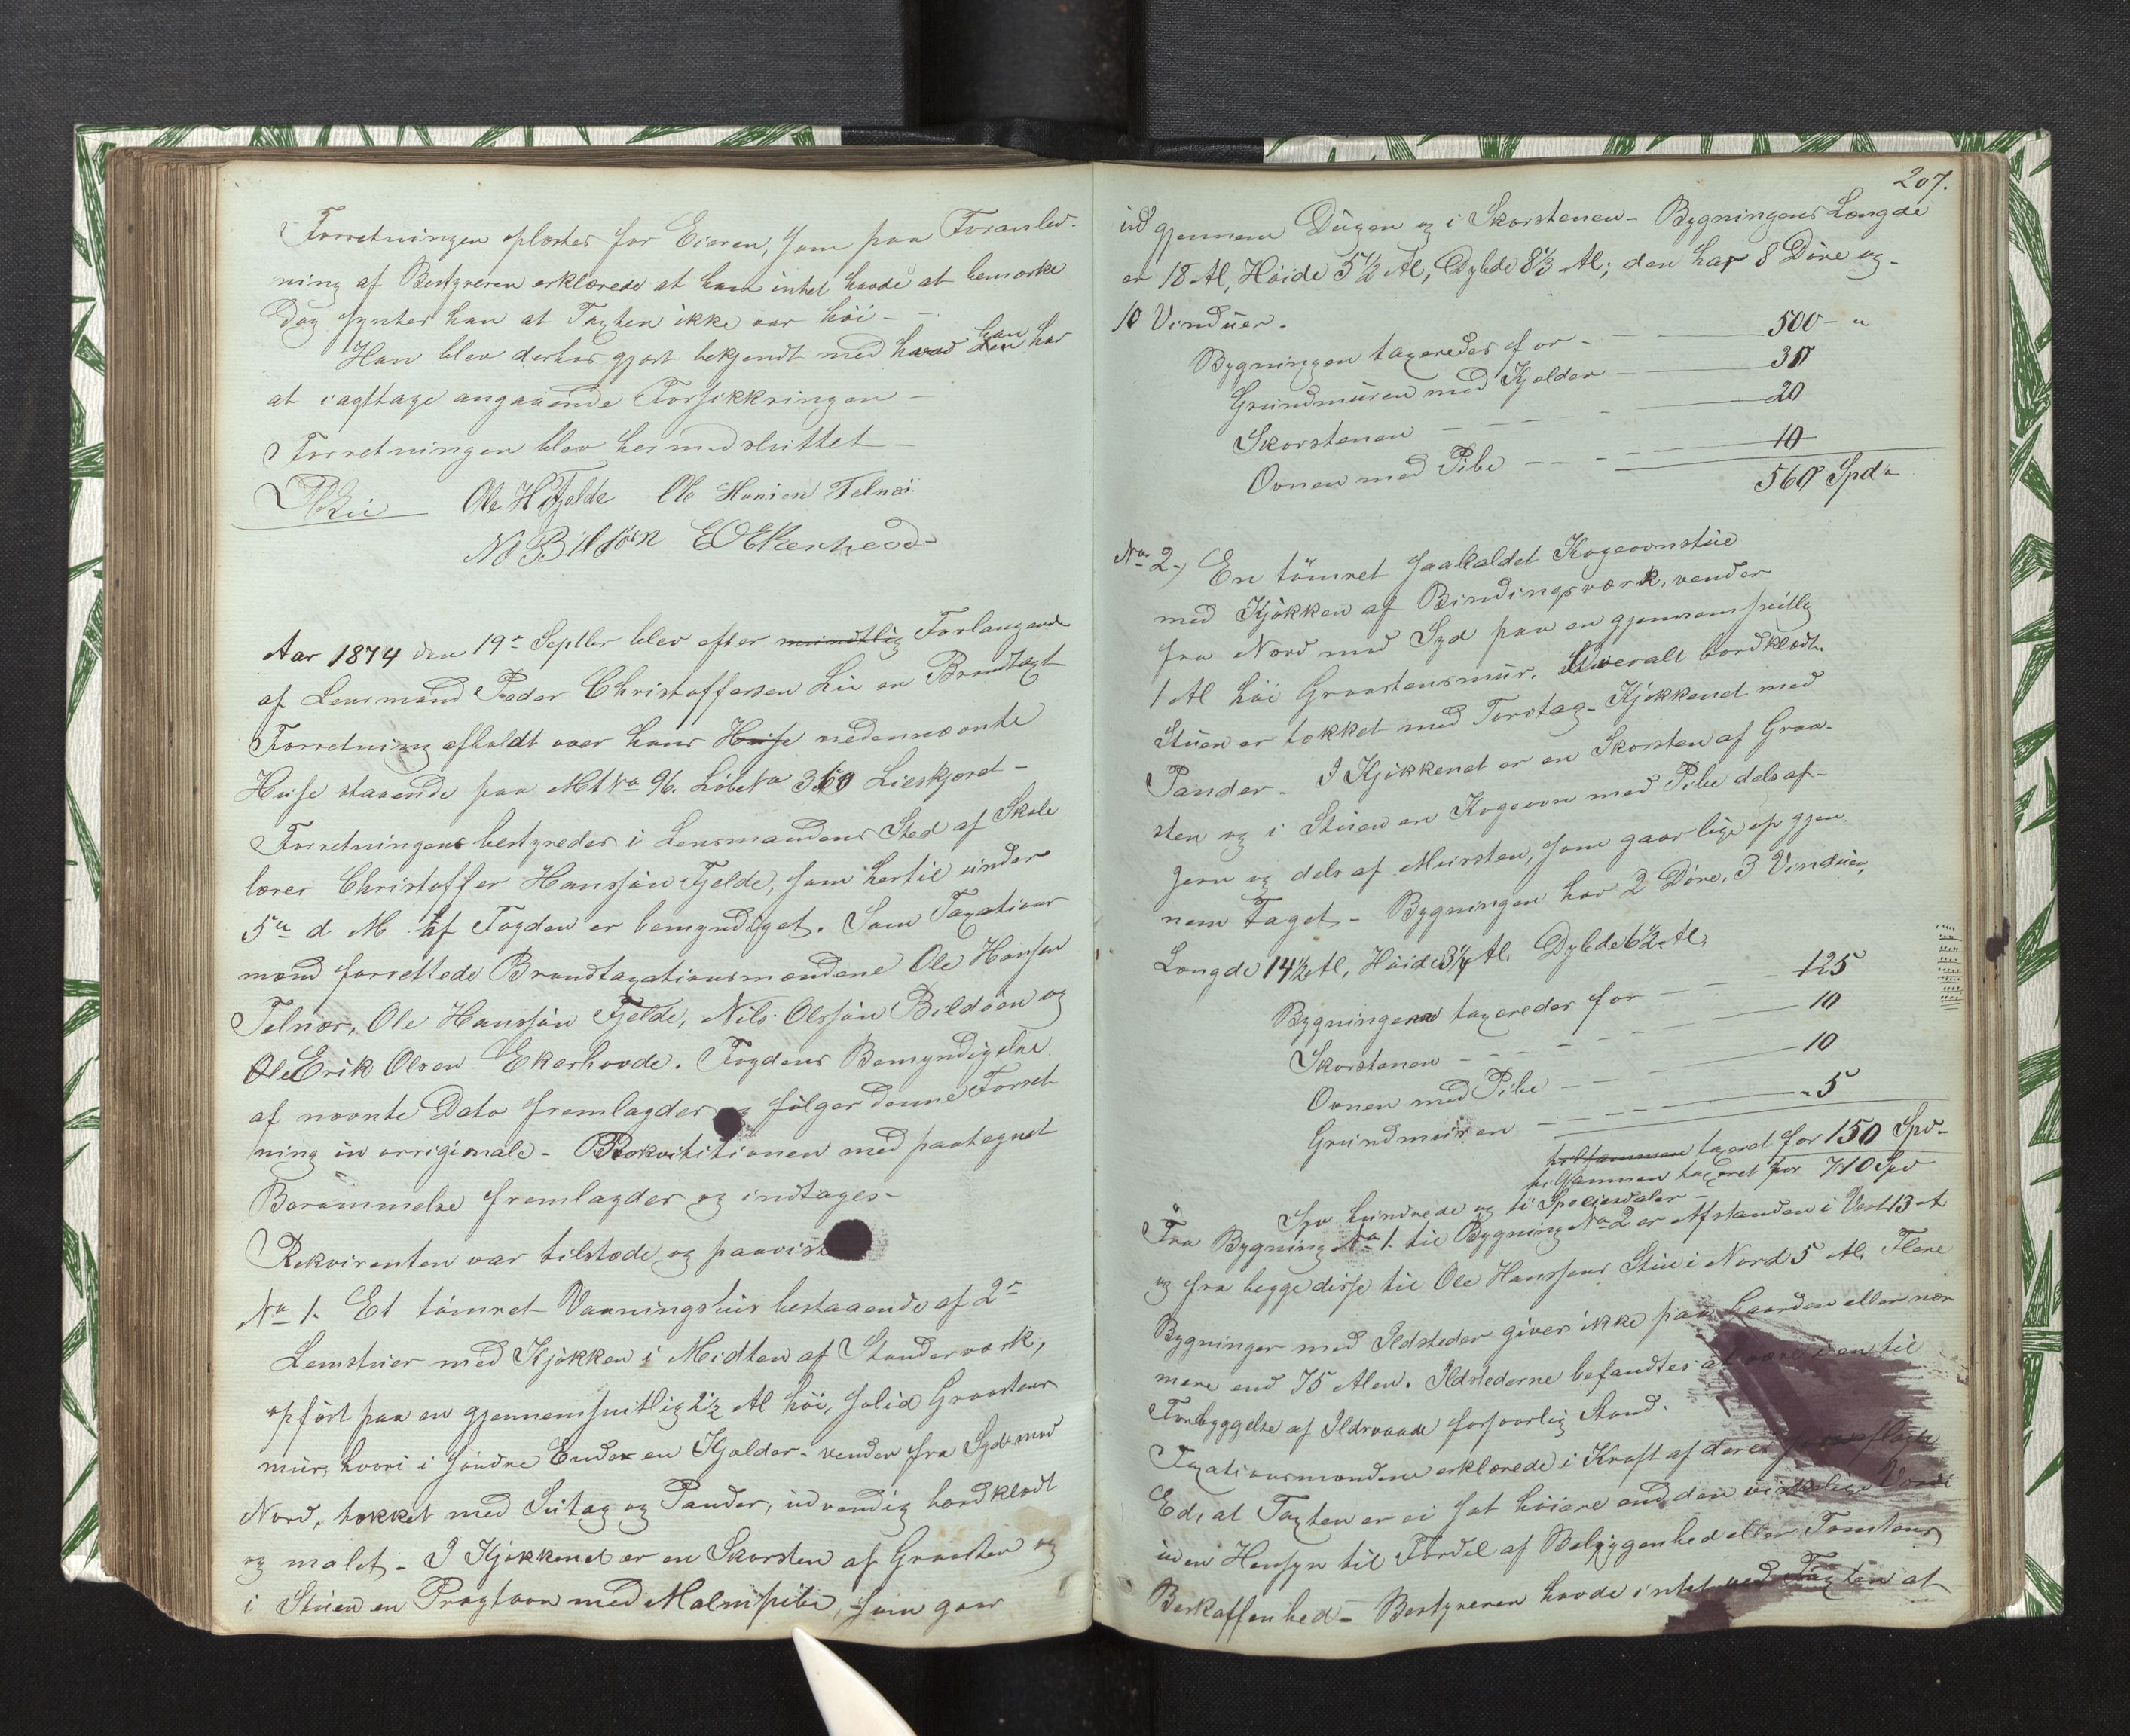 Forretningen oplæstes for Eieren, som paa Foranled-
ning af Bestyreren erklærede at han intet havde at bemærke
dog syntes han at Taxten ikke var höi -
Han blev derhos gjort bekjendt med hvad han har
at iagttage angaaende Forsikkringen -
Forretningen blev hermed sluttet -
Ole H Fjelde Ole Hansen Telnæs
N O Bildöen E O Ekerhovd
Aar 1874 den 19de Septbr blev efter mundtlig Forlangende
af Lensmand Peder Christoffersen Lie en Brandtaxt
Forretning afholdt over hans Huse nedennævnte
Huse staaende paa Mt No 96. Löbe No 360 Lieskjæret -
Forretningen bestyredes i Lensmandens Sted af Skole
lærer Christoffer Hanssön Fjelde, som hertil under
5te d. M. af Fogden er bemyndiget. Som Taxations
mænd forrettede Brandtaxationsmændene Ole Hansen
Telnæs, Ole Hanssön Fjelde, Nils Olssön Bildöen og
Ole Erik Olsen Ekerhovde. Fogdens Bemyndigelse
af nævnte Dato fremlagdes og fölger denne Forret-
ning in originale - Rekvisitionen med paategnet
Berammelse fremlagdes og indtages -
Rekvirenten var tilstede og paaviste
No 1. Et tömret Vaaningshus bestaaende af 2de
Lemstuer med Kjökken i Midten af Stenderværk,
opfört paa en gjennemsnitlig 2½ Al höi, solid Graastens
mur, hvori i söndre Ende en Kjelder - vender fra Syd mod
Nord, tækket med Sutag og Pander, udvendig bordklædt
og malet. - I Kjökkenet er en Skorsten af Graasten og
i Stuen en Pragtovn med Malmpibe, som gaar
207.
ud gjennem Dugen og i Skorstenen - Bygningens Længde
er 18 Al, Höide 5½ Al, Dybde 8⅓ Al; den har 8 Döre og
10 Vinduer.
Bygningen taxeredes for - 500 - "
Grundmuren med Kjelder - 30
Skorstenen - 20
Ovnen med Pibe - 10
560 Spd
No 2, En tömret saakaldet Kogeovnstue
med Kjökken af Bindingsværk, vender
fra Nord mod Syd paa en gjennemsnitlig
1 Al höi Graastensmur. Overalt bordklædt.
Stuen er tækket med Torvtag - Kjökkenet med
Pander - I Kjökkenet er en Skorsten af Graa-
sten og i Stuen en Kogeovn med Pibe dels af
Jern og dels af Mursten, som gaar lige op gjen-
nem Taget - Bygningen har 2 Döre, 3 Vinduer,
Længde 14½ Al, Höide 3¼ Al. Dybde 6½ Al,
Bygningen taxeredes for - 125
Skorstenen - 10
Ovnen med Pibe - 10
Grundmuren - 5
tilsammen taxeret for 150 Spd -
tilsammen taxeret for 710 Spd
Syv hundrede og ti Speciesdaler -
Fra Bygning No 1. til Bygning No 2 er Afstanden i Vest 13 Al
og fra begge disse til Ole Hanssens Stue i Nord 5 Al. Flere
Bygninger med Ildsteder gives ikke paa Gaarden eller nær
mere end 75 Alen. Ildstederne befandtes at være i en til
Forebyggelse af Ildsvaade forsvarlig Stand.
Taxationsmændene erklærede i Kraft af deres
Ed, at Taxten er ei sat höiere end den virkelige Værdi
uden Hensyn til Fordel af Beliggenhed eller Tomtens
Beskaffenhed - Bestyreren havde intet ved Taxten at